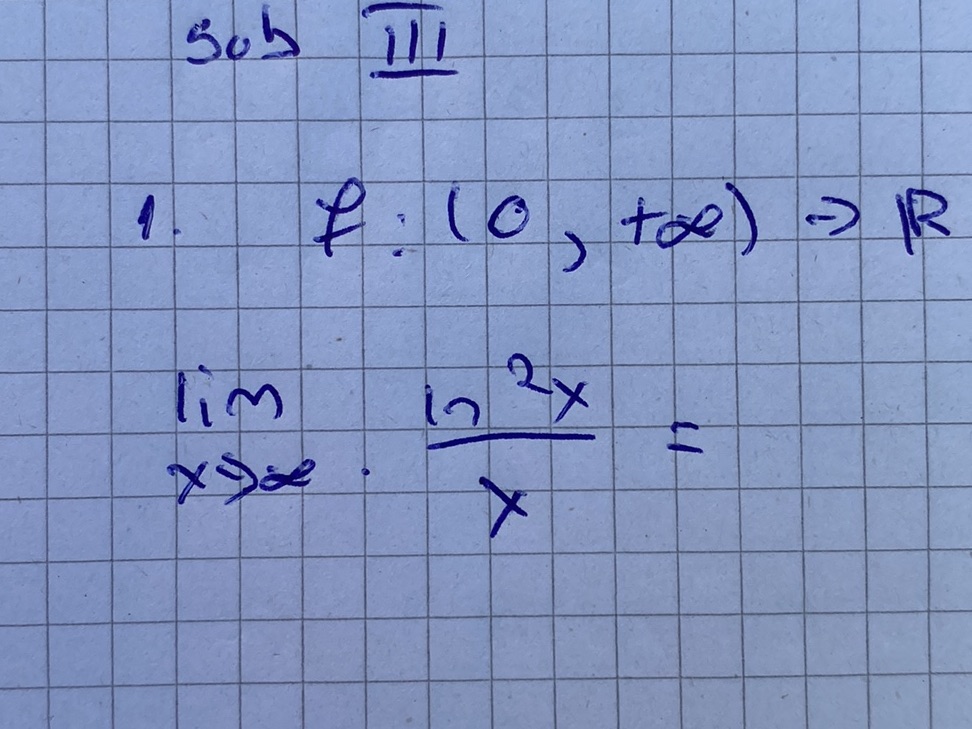 Sub III
1. f: (0, +∞) → ℝ
lim x→∞ . ln²x / x =